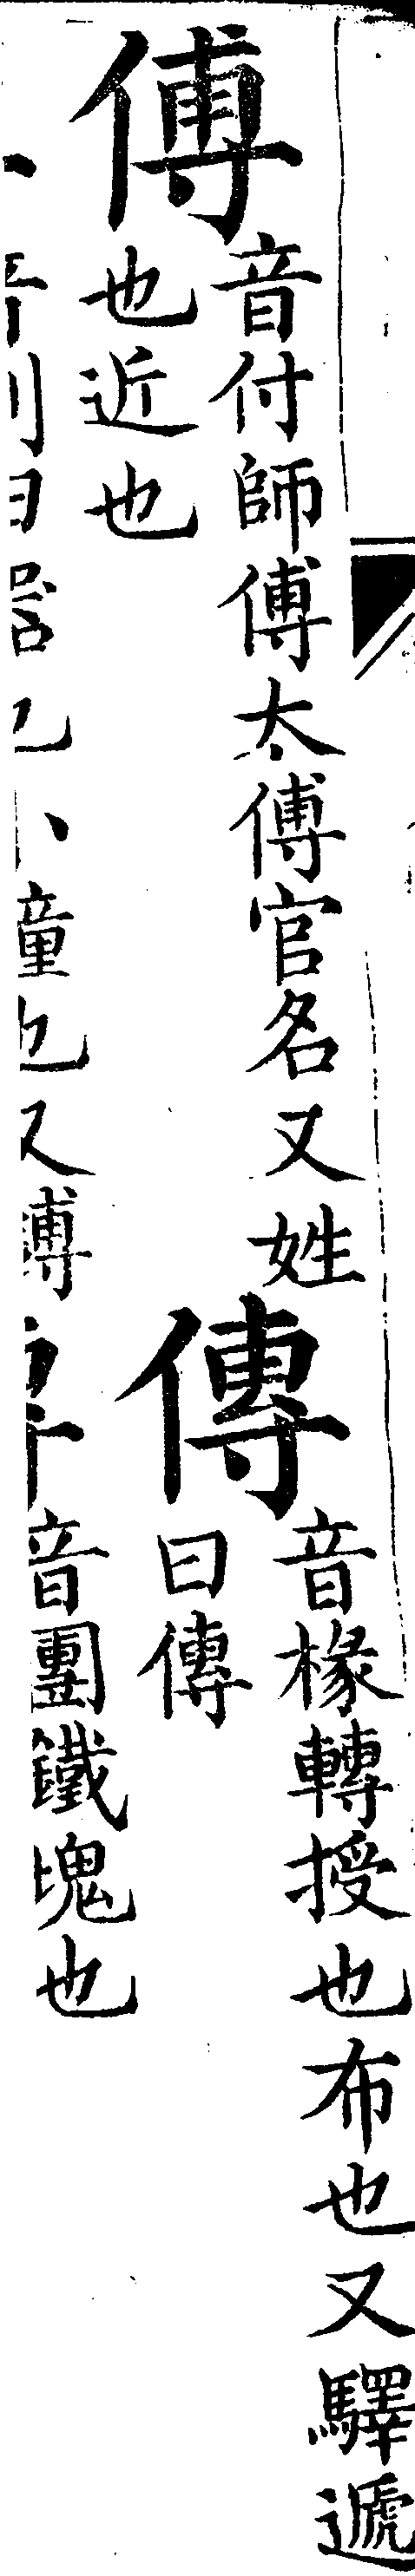 傅 音付師傅太傅官名又姓
也近也
傳 音椽轉授也布也又驛遞
曰傳
童也又
音團鐵塊也